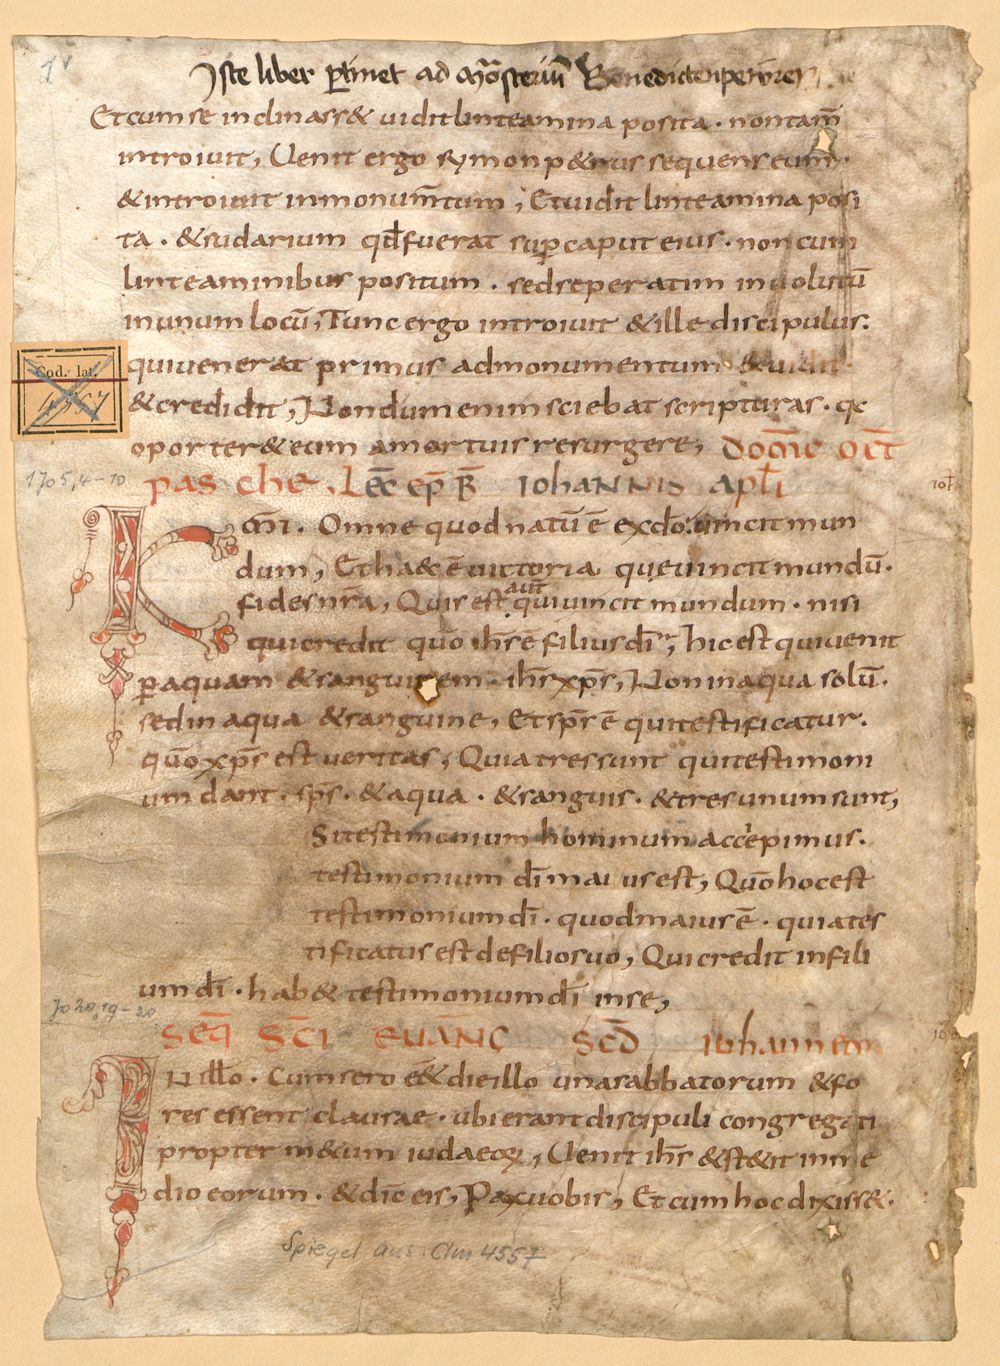 1v
Iste liber ꝑtinet ad mo͞nsteriū Benedictenpewren
Et cum se inclinass& uidit linteamina posita · non tam̄
introiuit, Uenit ergo symon p&rus sequens eum·
& introiuit in monum̄tum ; Et uidit linteamina posi
ta · & sudarium qd̄ fuerat suꝑ caput eius · non cum
linteaminibus positum · sed seperatim inuolutū
in unum locū, Tunc ergo introiuit & ille discipulus·
qui uenerat primus ad monumentum & uidit·
& credidit, Nondum enim sciebat scripturas · qc
oporter& eum a mortuis resurgere, DOM̄IC OCT̄
PAS CHE , LEC̄ EP̄ B̄ IOHANNIS APL̄I
1 Jo 5,4-10
K m̄i · Omne quod natū ē ex dō. uincit mun
dum, Et haec ē uictoria que uincit mundū·
fides nr̄a, Quis est aut̄ qui uincit mundum · nisi
qui credit quō ih̄s ē filius dī, hic est qui uenit
ꝑ aquam & sanguinem · ih̄s xp̄s, Non in aqua solū·
sed in aqua & sanguine, Et sp̄s ē qui testificatur·
quō xp̄s est ueritas, Quia tres sunt qui testimoni
um dant · sp̄s · & aqua · & sanguis · & tres unum sunt,
Si testimonium hominum accepimus·
testimonium dī maius est, Quō hoc est
testimonium dī · quod maius ē · quia tes
tificatus est de filio suo, Qui credit in fili
um dī · hab& testimonium dī in se,
Jo 20,19-
SEQ̄ SC̄I EUĀNG SCD̄ IOHANNEM
IN illō · Cum sero ē& die illo una sabbatorum & fo
res essent clausae · ubi erant discipuli congregati
propter m&um iudaeoꝝ, Uenit ih̄s & st&it in me
dio eorum · & dīc eis, Pax uobis, Et cum hoc dixiss&·
Spiegel aus Clm 4557
Cod. lat.
4557